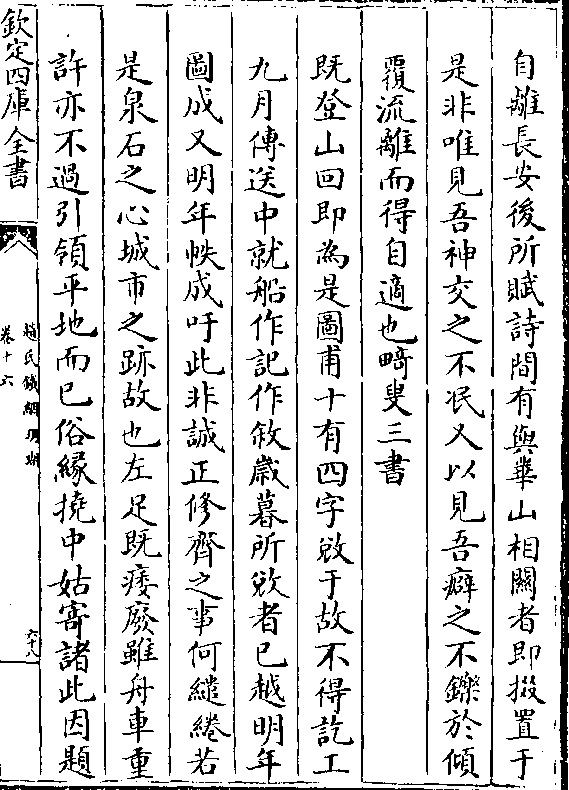 自離長安後所賦詩間有與華山相關者即掇置于
是非唯見吾神交之不泯又以見吾癖之不鑠於傾
覆流離而得自適也畸叟三書
既登山回即為是圖甫十有四字敓于故不得訖工
九月傳送中就船作記作敘歲暮所敓者已越明年
圖成又明年帙成吁此非誠正修齊之事何繾綣若
是泉石之心城市之跡故也左足既痿廢雖舟車重
許亦不過引領平地而已俗緣撓中姑寄諸此因題
欽定四庫全書
趙氏鐵網珊瑚
卷十六
六十八